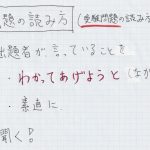 題の読み方 (受験問題の読み方
出題者が言っていることを
・わかってあげようと(なが
・素直に
聞く!